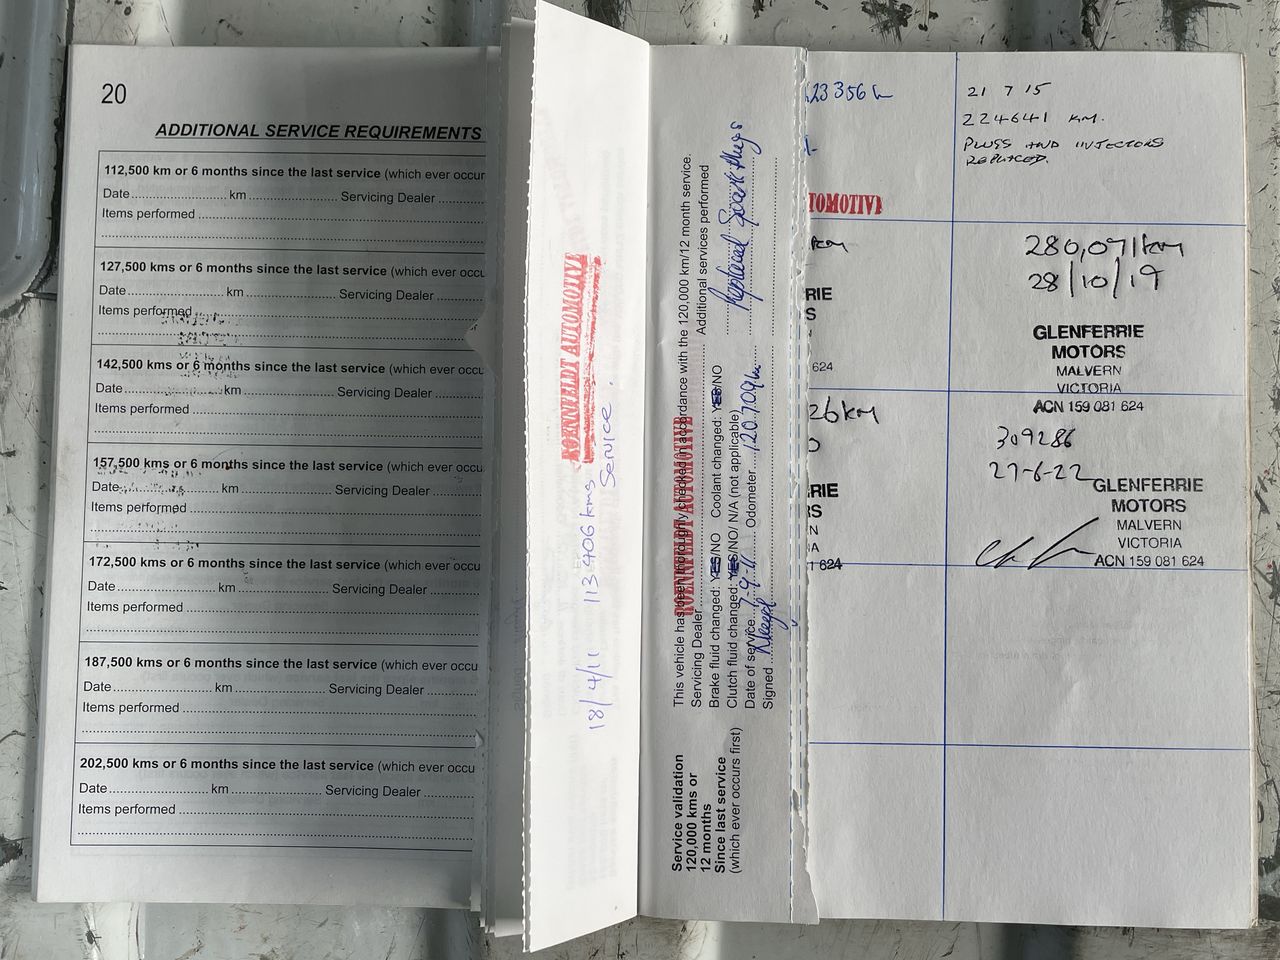 20
ADDITIONAL SERVICE REQUIREMENTS
112,500 km or 6 months since the last service (which ever occur
Date.......... km.......... Servicing Dealer ..........
Items performed ..........
127,500 kms or 6 months since the last service (which ever occu
Date.......... km.......... Servicing Dealer ..........
Items performed ..........
142,500 kms or 6 months since the last service (which ever occu
Date.......... km.......... Servicing Dealer ..........
Items performed ..........
157,500 kms or 6 months since the last service (which ever occu
Date.......... km.......... Servicing Dealer ..........
Items performed ..........
172,500 kms or 6 months since the last service (which ever occu
Date.......... km.......... Servicing Dealer ..........
Items performed ..........
187,500 kms or 6 months since the last service (which ever occu
Date.......... km.......... Servicing Dealer ..........
Items performed ..........
202,500 kms or 6 months since the last service (which ever occu
Date.......... km.......... Servicing Dealer ..........
Items performed ..........
ROENNFELDT AUTOMOTIVE
18/4/11 113406 kms
Service.
Service validation
120,000 kms or
12 months
Since last service
(which ever occurs first)
This vehicle has been thoroughly checked in accordance with the 120,000 km/12 month service.
ROENNFELDT AUTOMOTIVE
Servicing Dealer.......... Additional services performed
Brake fluid changed: YES/NO Coolant changed: YES/NO Replaced Spark plugs
Clutch fluid changed: YES/NO/ N/A (not applicable)
Date of service...7-9-11... Odometer...120.709km
Signed
23356
TOMOTIVE
km
RIE
S
624
26km
RIE
RS
N
IA
1 624
21 7 15
224641 KM.
PLUGS AND INJECTORS
REPLACED.
280,071km
28/10/19
GLENFERRIE
MOTORS
MALVERN
VICTORIA
ACN 159 081 624
309286
27-6-22
GLENFERRIE
MOTORS
MALVERN
VICTORIA
ACN 159 081 624